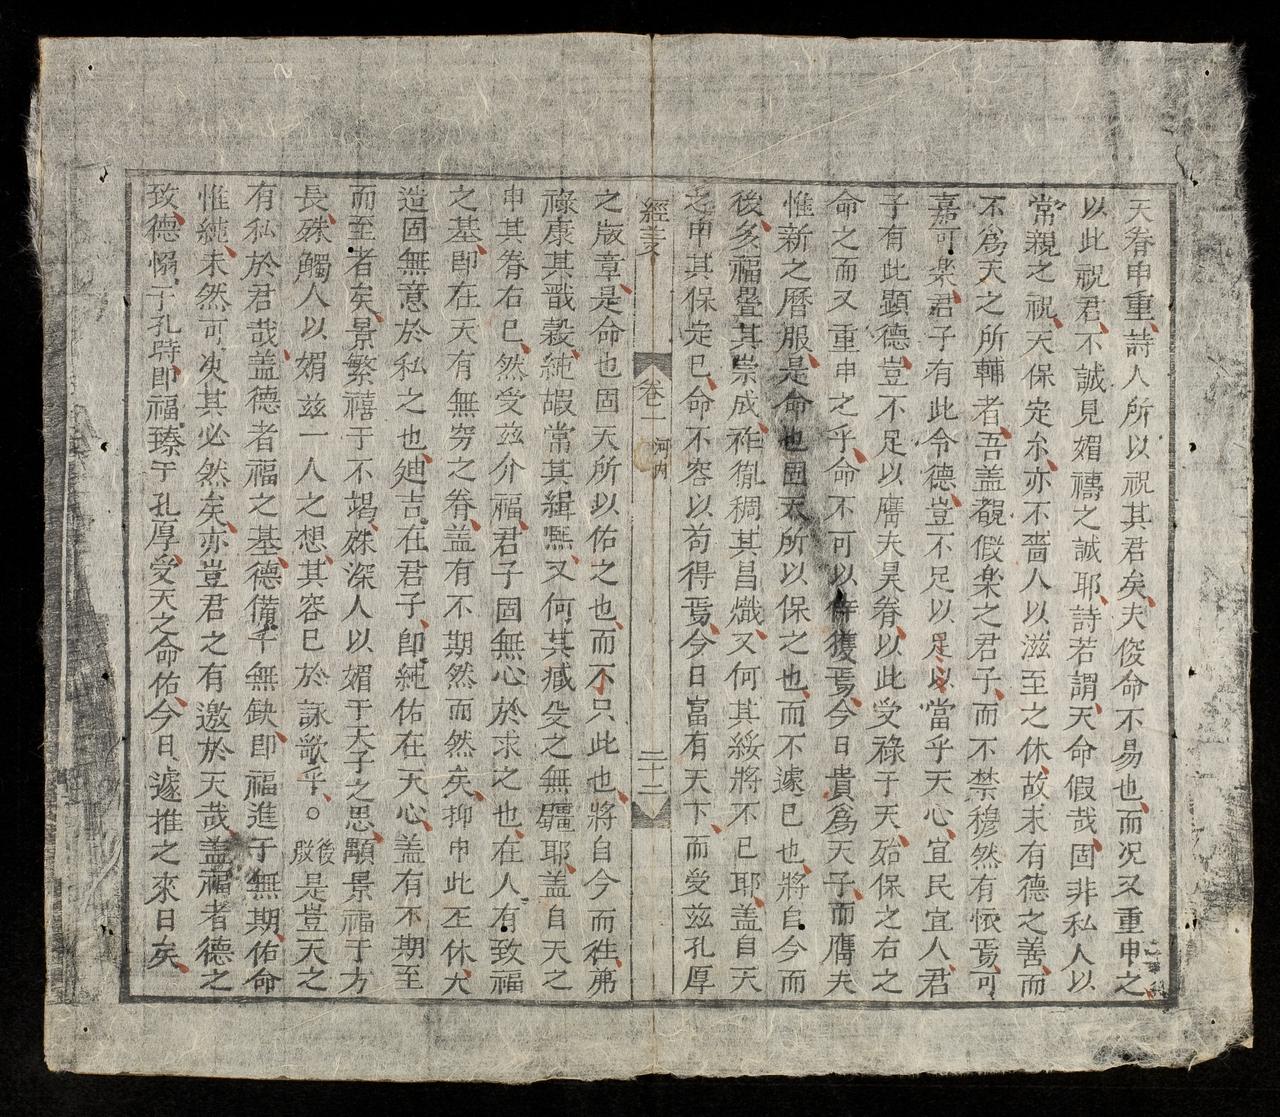 天眷申重詩人所以祝其君矣夫俊命不易也而况又重申之
以此祝君不誠見媚禱之誠耶詩若謂天命假哉固非私人以
常親之祝天保定尒亦不啻人以滋至之休故未有德之善而
不為天之所輔者吾盖覩假楽之君子而不禁穆然有懷焉可
嘉可楽君子有此令德豈不足以足以當乎天心宜民宜人君
子有此顕德豈不足以膺夫昊眷以此受祿于天殆保之右之
命之而又重申之乎命不可以倖獲焉今日貴為天子而膺夫
惟新之曆服是命也固天所以保之也而不遽已也將自今而
後多福疊其崇成祚胤稠其昌熾又何其綏將不已耶盖自天
之申其保定已命不容以苟得焉今日富有天下而受茲孔厚
經義 卷二 河内 二十二
之版章是命也固天所以佑之也而不只此也將自今而徃弟
祿康其戩穀純嘏常其緝熙又何其臧受之無疆耶盖自天之
申其眷右已然受茲介福君子固無心於求之也在人有致福
之基即在天有無穷之眷盖有不期然而然矣抑申此丕休大
造固無意於私之也廸吉在君子即純佑在天心盖有不期至
而至者矣景繁禧于不竭殊深人以媚于天子之思顒景福于方
長殊觸人以媚茲一人之想其容已於詠歌乎。後股是豈天之
有私於君哉盖德者福之基德備于無缺即福進于無期佑命
惟純未然可决其必然矣亦豈君之有邀於天哉盖福者德之
致德愵于孔時即福臻于孔厚受天之命佑今日遽推之來日矣